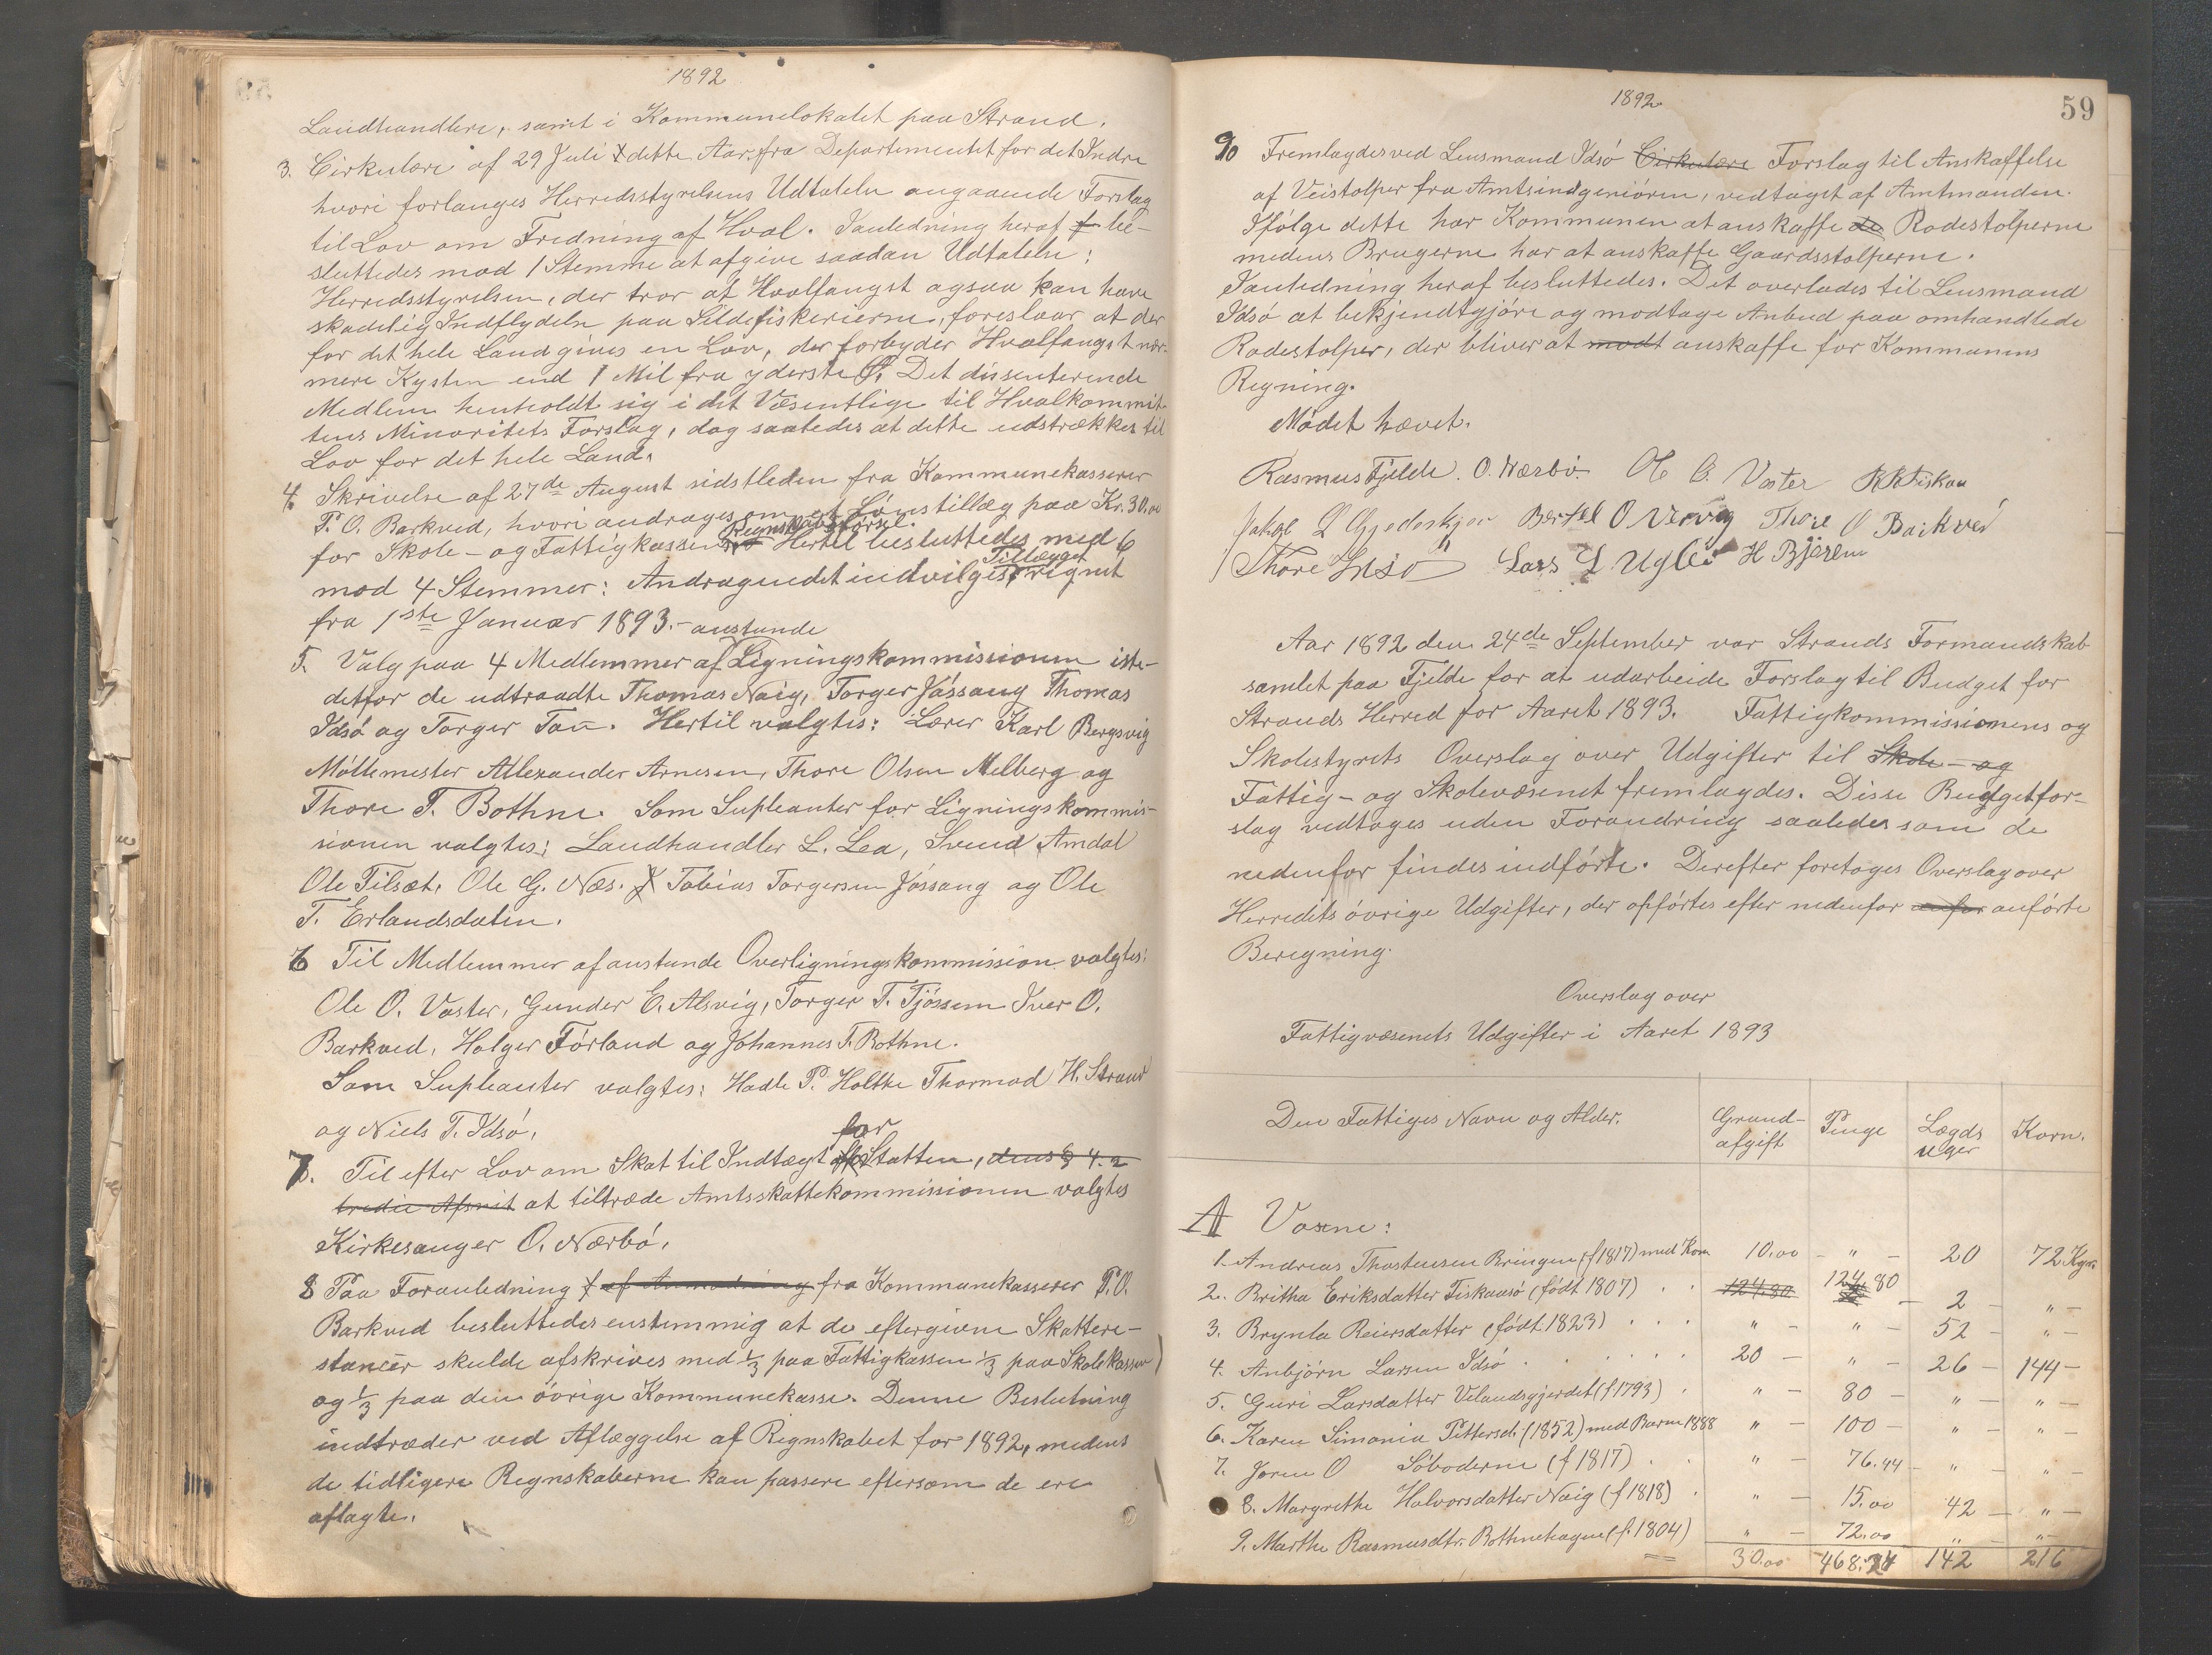 1892
Landhandlere, samt i Kommunelokalet paa Strand.
3. Cirkulære af 29 Juli dette Aar fra Departementet for det Indre
hvori forlanges Herredsstyrelsens Udtalelse angaaende Forslag
til Lov om Fredning af Hval. I anledning heraf be-
sluttedes mod 1 Stemme at afgive saadan Udtalelse:
Herredsstyrelsen, der tror at Hvalfangst ogsaa kan have
skadelig Indflydelse paa Sildefiskerierne, foreslaar at der
for det hele Land gives en Lov, der forbyder Hvalfangst nær-
mere Kysten end 1 Mil fra yderste Ø. Det dissenterende
Medlem henholdt sig i det Væsentlige til Hvalkommit-
tens Minoritets Forslag, dog saaledes at dette udstrækkes til
Lov for det hele Land.
4. Skrivelse af 27de August sidstleden fra Kommunekasserer
P. O. Barkved, hvori andrages om et Lønstillæg paa Kr. 30.00
for Skole- og Fattigkassens Regnskabsførsel. Hertil besluttedes med 6
mod 4 Stemmer: Andragendet indvilges, Tillægget regnet
fra 1ste Januar 1893.
5. Valg paa 4 Medlemmer af anstunde Ligningskommissionen iste-
detfor de udtraadte Thomas Nåig, Torger Jøssang Thomas
Idsø og Torger Tau. Hertil valgtes: Lærer Karl Bergsvig
Møllemester Allexander Arnesen, Thore Olsen Melberg og
Thore T. Bothne. Som Supleanter for Ligningskommis-
sionen valgtes: Landhandler L. Lea, Svend Amdal
Ole Tilsæt, Ole G. Næs. Tobias Torgersen Jøssang og Ole
T. Erlandsdalen.
6 Til Medlemmer af anstunde Overligningskommission valgtes:
Ole O. Vaster, Gunder E. Alsvig, Torger T. Tjøssem Iver O.
Barkved, Holger Førland og Johannes T. Bothne.
Som Supleanter valgtes: Hadle P. Holtte Thormod H. Strand
og Niels T. Idsø.
7. Til efter Lov om Skat til Indtægt for Statten, dens § 4. 2
tredie Afsnit at tiltræde Amtsskattekommissionen valgtes
Kirkesanger O. Nærbø.
8 Paa Foranledning af Anmodning fra Kommunekasserer P. O.
Barkved besluttedes enstemmig at de eftergivne Skattere-
stancer skulde afskrives med 1/3 paa Fattigkassen 1/3 paa Skolekassen
og 1/3 paa den øvrige Kommunekasse. Denne Beslutning
indtræder ved Aflæggelse af Regnskabet for 1892, medens
de tidligere Regnskaberne kan passere eftersom de ere
aflagte.
1892
59
9 Fremlagdes ved Lensmand Idsø Cirkulære Forslag til Anskaffelse
af Veistolper fra Amtsingeniøren, vedtaget af Amtmanden.
Ifølge dette har Kommunen at anskaffe de Rodestolperne
medens Brugerne har at anskaffe Gaardsstolperne.
I anledning heraf besluttedes. Det overlades til Lensmand
Idsø at bekjendtgjøre og modtage Anbud paa omhandlede
Rodestolper, der bliver at modt anskaffe for Kommunens
Regning.
Mødet hævet.
Rasmus Fjelde. O. Nærbø. Ole O. Vaster R R Fiskaa
Jakob L Gjedeskjær Bertel O Vervig Thore O Barkved
Thore Idsø Lars L Uglei H Bjeren
Aar 1892 den 24de September var Strands Formandskab
samlet paa Fjelde for at udarbeide Forslag til Budget for
Strands Herred for Aaret 1893. Fattigkommissionens og
Skolestyrets Overslag over Udgifter til Skole- og
Fattig- og Skolevæsenet fremlagdes. Disse Budgetfor-
slag vedtages uden Forandring saaledes som de
nedenfor findes indførte. Derefter foretages Overslag over
Herredets øvrige Udgifter, der opførtes efter nedenfor anfør anførte
Beregning.
Overslag over
Fattigvæsenets Udgifter i Aaret 1893
Den Fattiges Navn og Alder. Grund-afgift Penge Lægds uger Korn.
A Voxne:
1. Andreas Thostensen Bringen (f 1817) med Kone 10.00 - " - 20 72 Kgr.
2. Britha Eriksdatter Fiskaasø (født 1807) 124.80 124.80 - 2 - " -
3. Brynla Reiersdatter (født 1823) " - " - 52 - " -
4. Anbjørn Larsen Idsø 20 - " - 26 - 144 -
5. Guri Larsdatter Velandsgjerdet (f 1793) " - 80 - " - " -
6. Karen Simonia Pettersd. (1852) med Barn 1888 " - 100 - " - " -
7. Joren O Søboderne (f 1817) " - 76.44 - " - " -
8. Margrethe Halvorsdatter Naig (f 1818) " - 15.00 42 - " -
9. Marthe Rasmusdtr. Bothnehagen (f. 1804) " - 72.00 " "
30.00 468.24 142 216